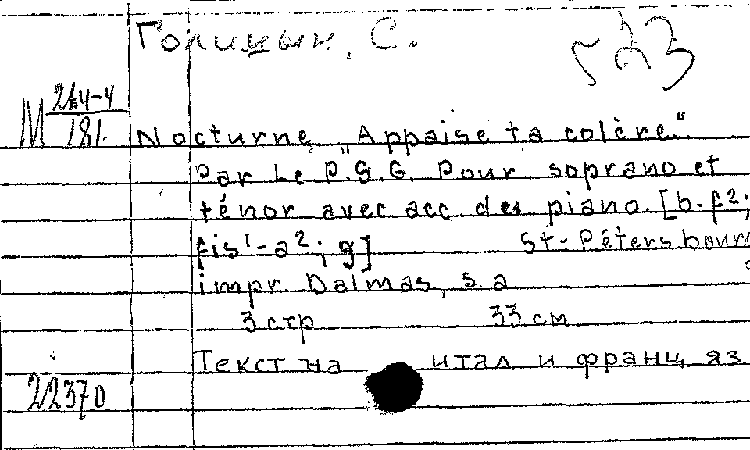 Голицын, С.
523
М 214-4
181.
Nocturne „Appaise ta colère"
Par Le P. S. G. Pour soprano et
ténor avec acc des piano. [b.-f²;
fis¹-a²; g] St-Pétersbourg
impr. Dalmas, s. a
3 стр 33 см
Текст на итал и франц, яз
22370